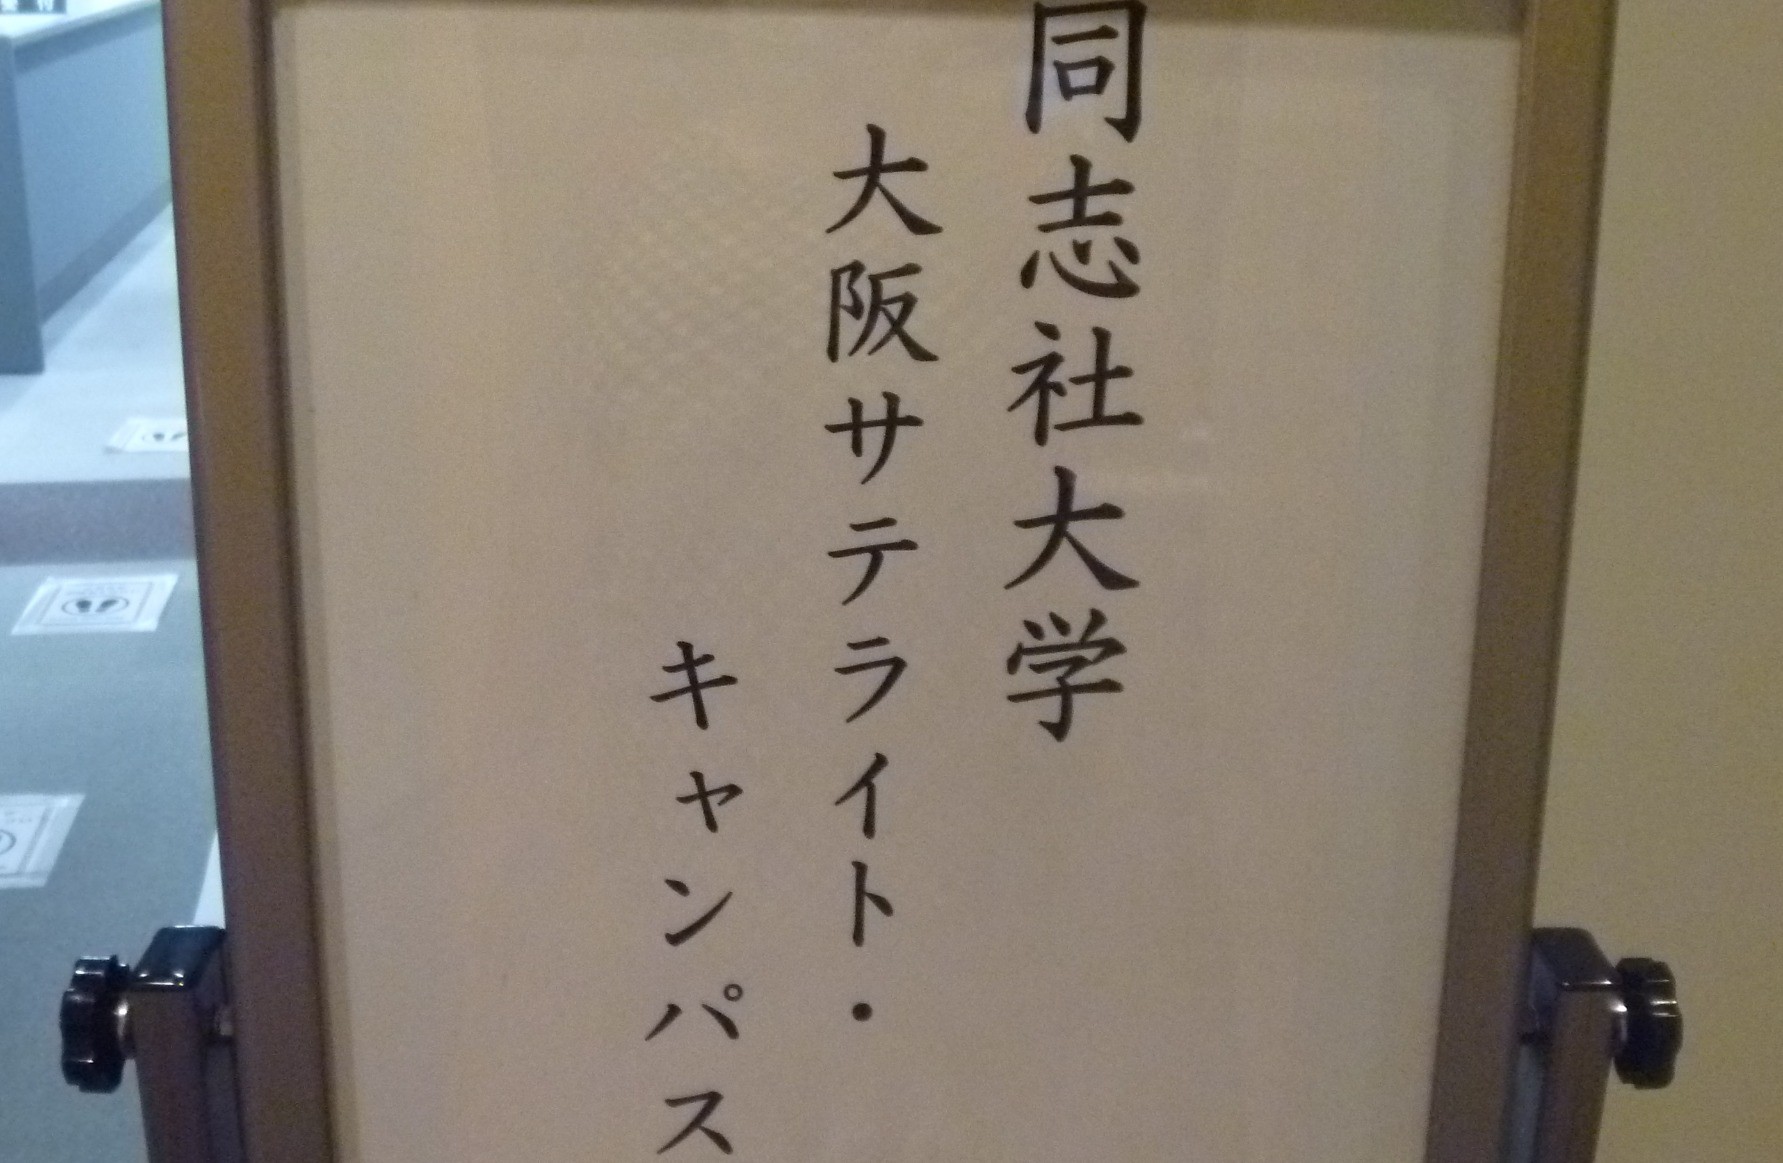 同志社大学
大阪サテライト・
キャンパス